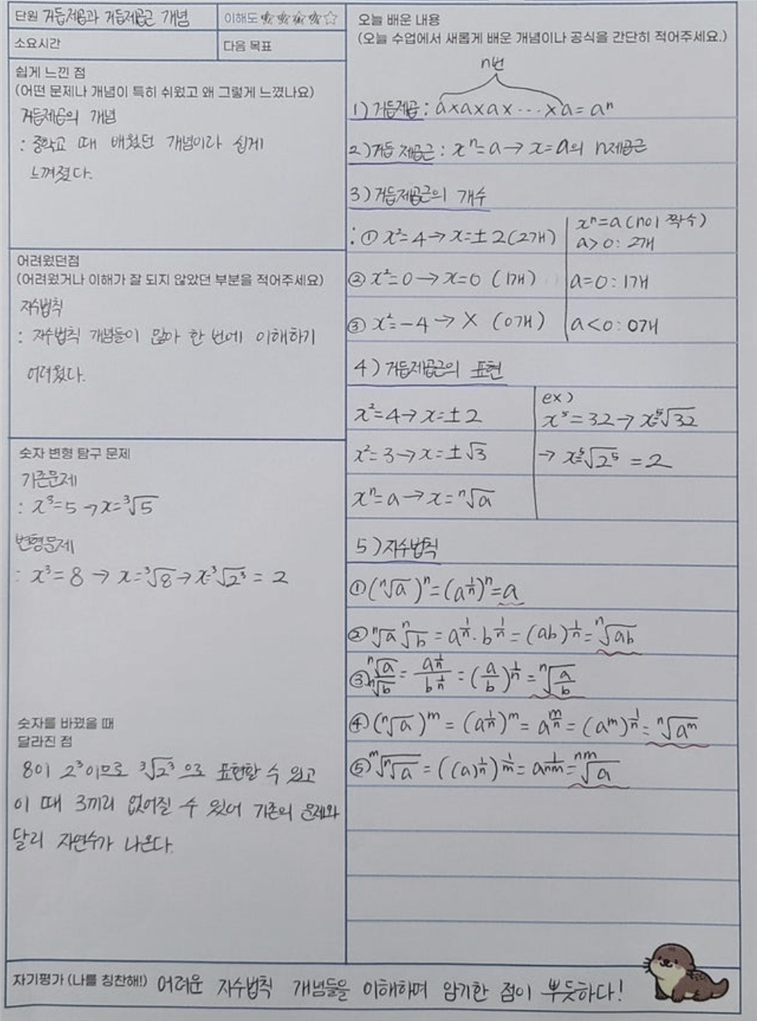 단원 거듭제곱과 거듭제곱근 개념
이해도 ★★★★☆
소요시간
다음 목표
쉽게 느낀 점
(어떤 문제나 개념이 특히 쉬웠고 왜 그렇게 느꼈나요)
거듭제곱의 개념
: 중학교 때 배웠던 개념이라 쉽게
느껴졌다.
어려웠던점
(어려웠거나 이해가 잘 되지 않았던 부분을 적어주세요)
지수법칙
: 지수법칙 개념들이 많아 한 번에 이해하기
어려웠다.
숫자 변형 탐구 문제
기존문제
: x³=5 → x=³√5
변형문제
: x³=8 → x=³√8 → x=³√2³ = 2
숫자를 바꿨을 때
달라진 점
8이 2³이므로 ³√2³ 으로 표현할 수 있고
이 때 3끼리 없어질 수 있어 기존의 문제와
달리 자연수가 나온다.
오늘 배운 내용
(오늘 수업에서 새롭게 배운 개념이나 공식을 간단히 적어주세요.)
n번
1) 거듭제곱 : a×a×a×···×a = aⁿ
2) 거듭 제곱근 : xⁿ=a → x=a의 n제곱근
3) 거듭제곱근의 개수
: ① x²=4 → x=±2 (2개)
② x²=0 → x=0 (1개)
③ x²=-4 → X (0개)
xⁿ=a (n이 짝수)
a>0 : 2개
a=0 : 1개
a<0 : 0개
4) 거듭제곱근의 표현
x²=4 → x=±2
x²=3 → x=±√3
xⁿ=a → x=ⁿ√a
ex)
x⁵=32 → x=⁵√32
→ x=⁵√2⁵ = 2
5) 지수법칙
① (ⁿ√a)ⁿ = (a^(1/n))ⁿ = a
② ⁿ√a ⁿ√b = a^(1/n)·b^(1/n) = (ab)^(1/n) = ⁿ√ab
③ ⁿ√a/ⁿ√b = a^(1/n)/b^(1/n) = (a/b)^(1/n) = ⁿ√(a/b)
④ (ⁿ√a)^m = (a^(1/n))^m = a^(m/n) = (a^m)^(1/n) = ⁿ√a^m
⑤ ᵐ√ⁿ√a = ((a)^(1/n))^(1/m) = a^(1/nm) = ⁿᵐ√a
자기평가 (나를 칭찬해!) 어려운 지수법칙 개념들을 이해하며 암기한 점이 뿌듯하다!